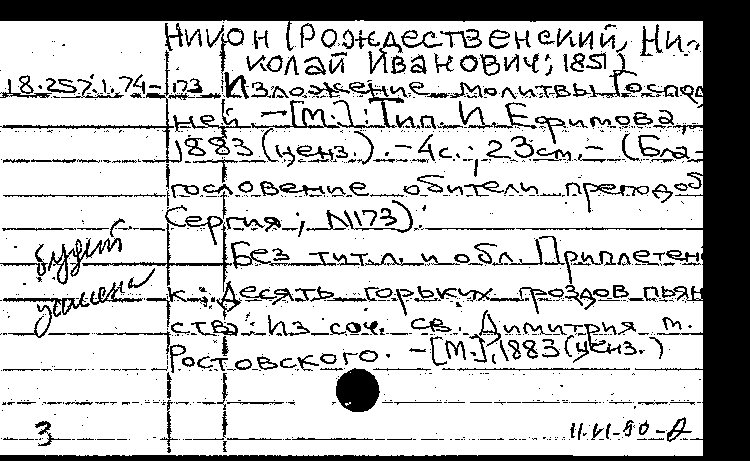 Никон (Рождественский, Ни-
колай Иванович; 1851)
18.257.1.74-173 Изложение молитвы Господ
ней. - [М.]: Тип. И. Ефимова,
1883 (ценз.). - 4с.; 23см. - (Бла-
гословение обители преподоб
Сергия; N173).
Без тит.л. и обл. Приплетен
к: Десять горьких гроздов пьян
ства: Из соч. св. Димитрия м.
Ростовского. - [М.], 1883 (ценз.)
будет
3
11.VI-80-